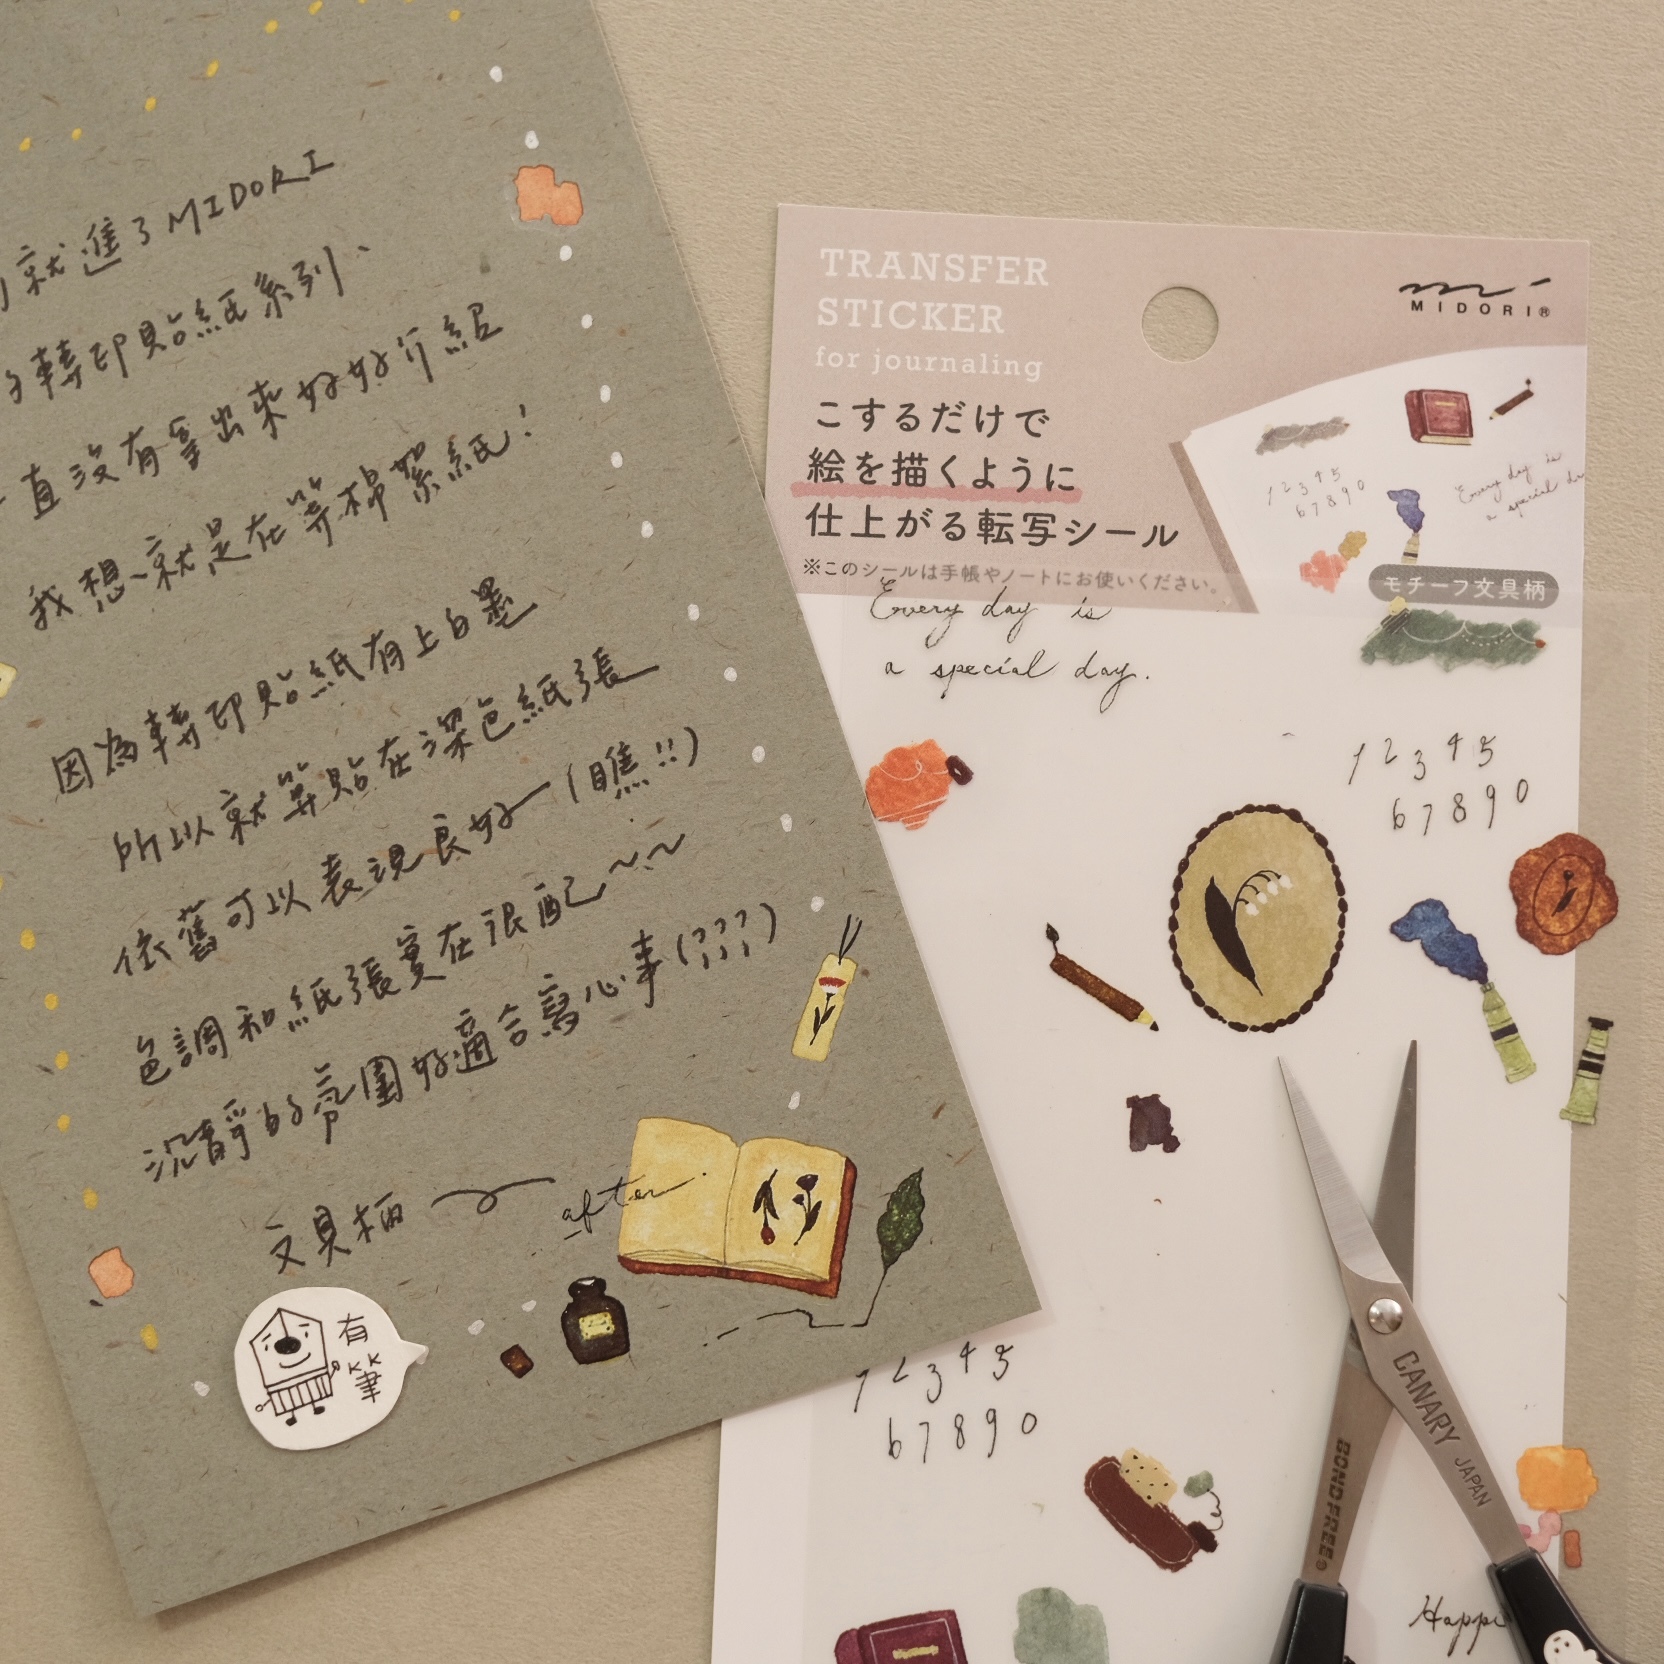 就進了MIDORI
轉印貼紙系列、
直沒有拿出來好好介紹
我想、就是在等棉絮紙！
因為轉印貼紙有上白墨
所以就算貼在深色紙張
依舊可以表現良好－(瞧!!)
色調和紙張實在很配～～
沉靜的氛圍好適合寫心事(????)
文具柄
after
有
筆
TRANSFER
STICKER
for journaling
こするだけで
絵を描くように
仕上がる転写シール
※このシールは手帳やノートにお使いください。
MIDORI®
1 2 3 4 5
6 7 8 9 0
Every day is
a special
モチーフ文具柄
Every day is
a special day.
1 2 3 4 5
6 7 8 9 0
1 2 3 4 5
6 7 8 9 0
CANARY JAPAN
BONDFREE®
Happi